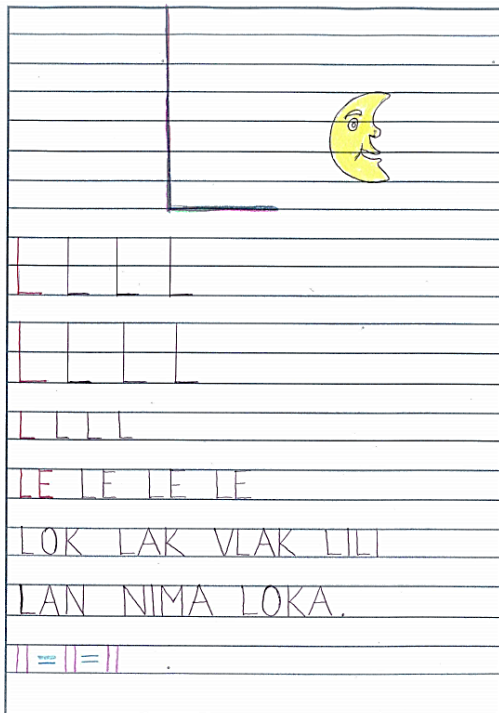 L
L L L L
L L L L
L L L L
LE LE LE LE
LOK LAK VLAK LILI
LAN NIMA LOKA.
||=||=||